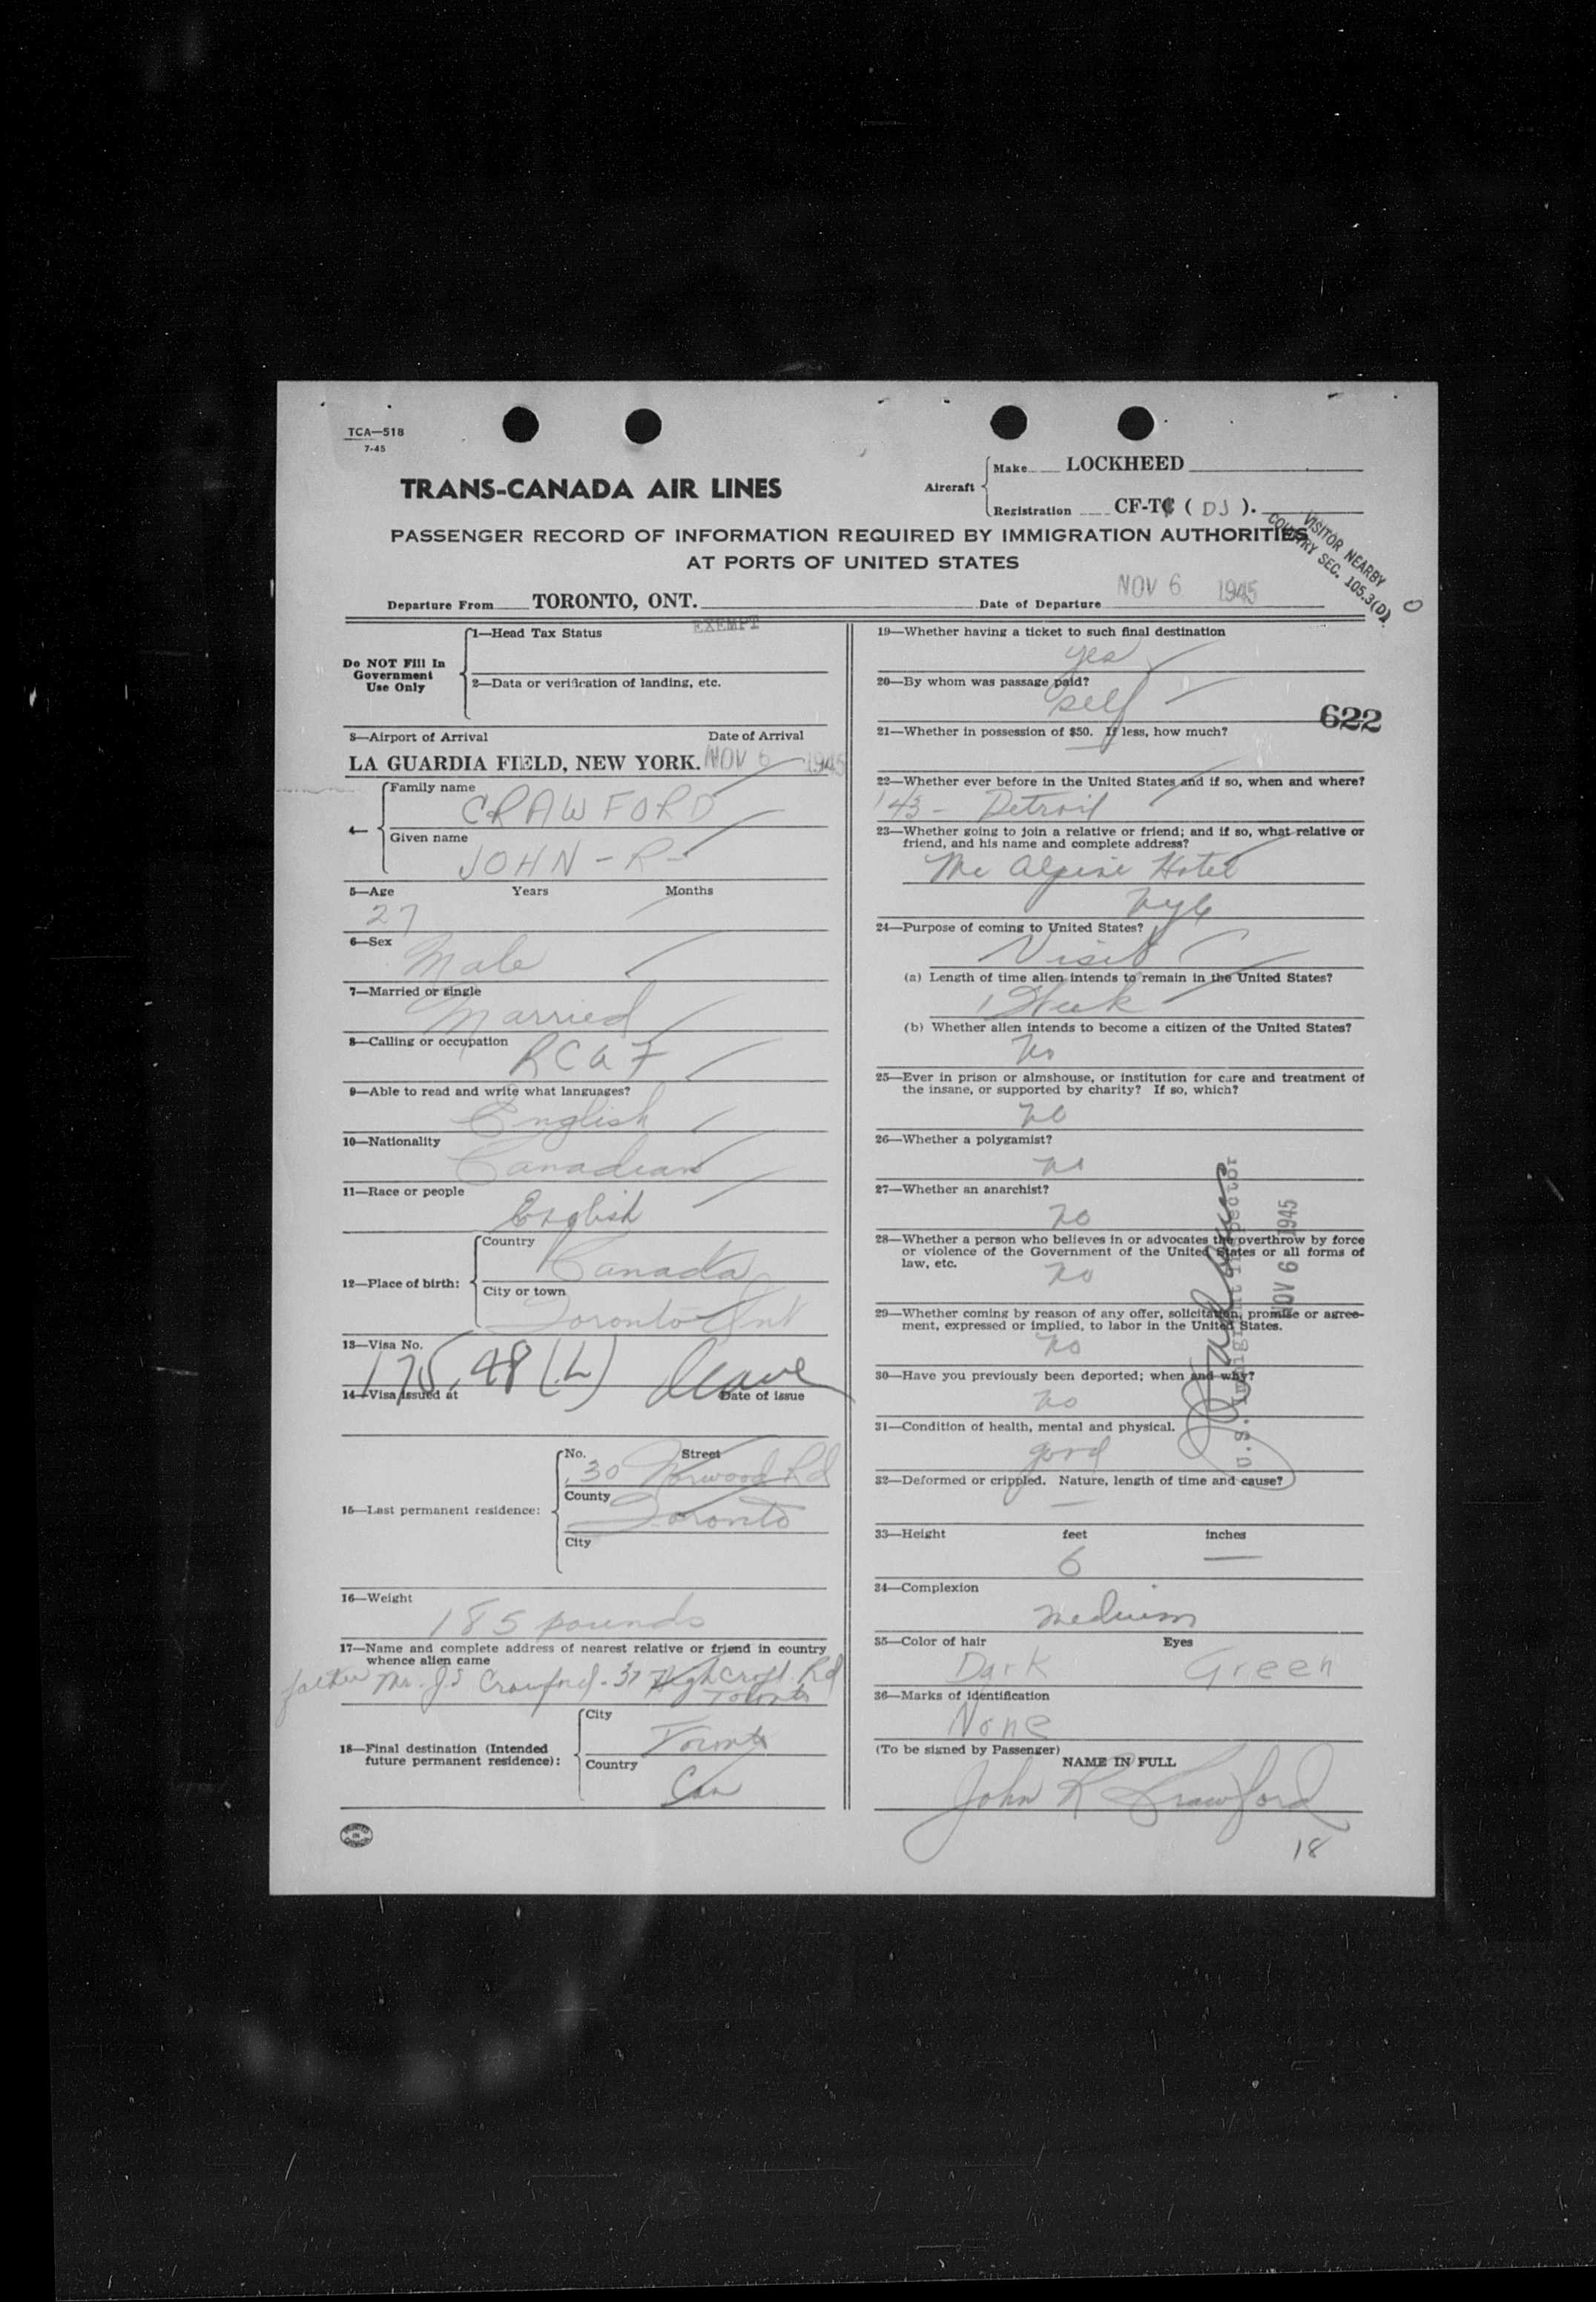 TCA—518
7-45
TRANS-CANADA AIR LINES
Aircraft
Make LOCKHEED
Registration CF-TC ( DJ ).
PASSENGER RECORD OF INFORMATION REQUIRED BY IMMIGRATION AUTHORITIES
AT PORTS OF UNITED STATES
VISITOR NEARBY
COUNTRY SEC. 105.3(D)
Departure From TORONTO, ONT. Date of Departure NOV 6 1945
Do NOT Fill In
Government
Use Only
1—Head Tax Status EXEMPT
2—Data or verification of landing, etc.
3—Airport of Arrival Date of Arrival
LA GUARDIA FIELD, NEW YORK. NOV 6 1945
4—
Family name
CRAWFORD
Given name
JOHN - R-
5—Age Years Months
27
6—Sex
Male
7—Married or single
Married
8—Calling or occupation
RCAF
9—Able to read and write what languages?
English
10—Nationality
Canadian
11—Race or people
English
12—Place of birth:
Country
Canada
City or town
Toronto Ont
13—Visa No.
175.48 (L) Leave
14—Visa issued at Date of issue
15—Last permanent residence:
No. Street
30 Norwood Rd
County
Toronto
City
16—Weight
185 pounds
17—Name and complete address of nearest relative or friend in country
whence alien came
father Mr. J.S Crawford - 37 Highcroft Rd
Toronto
18—Final destination (Intended
future permanent residence):
City
Toronto
Country
Can
PRINTED
IN
CANADA
19—Whether having a ticket to such final destination
yes
20—By whom was passage paid?
self
622
21—Whether in possession of $50. If less, how much?
—
22—Whether ever before in the United States and if so, when and where?
143 - Detroit
23—Whether going to join a relative or friend; and if so, what relative or
friend, and his name and complete address?
Mc Alpine Hotel
NYC
24—Purpose of coming to United States?
Visit
(a) Length of time alien intends to remain in the United States?
1 Week
(b) Whether alien intends to become a citizen of the United States?
No
25—Ever in prison or almshouse, or institution for care and treatment of
the insane, or supported by charity? If so, which?
no
26—Whether a polygamist?
no
27—Whether an anarchist?
no
28—Whether a person who believes in or advocates the overthrow by force
or violence of the Government of the United States or all forms of
law, etc.
no
29—Whether coming by reason of any offer, solicitation, promise or agree-
ment, expressed or implied, to labor in the United States.
no
30—Have you previously been deported; when and why?
no
U.S. Immigrant Inspector
NOV 6 1945
31—Condition of health, mental and physical.
good
32—Deformed or crippled. Nature, length of time and cause?
—
33—Height feet inches
6 —
34—Complexion
medium
35—Color of hair Eyes
Dark Green
36—Marks of identification
None
(To be signed by Passenger)
NAME IN FULL
John R Crawford
18